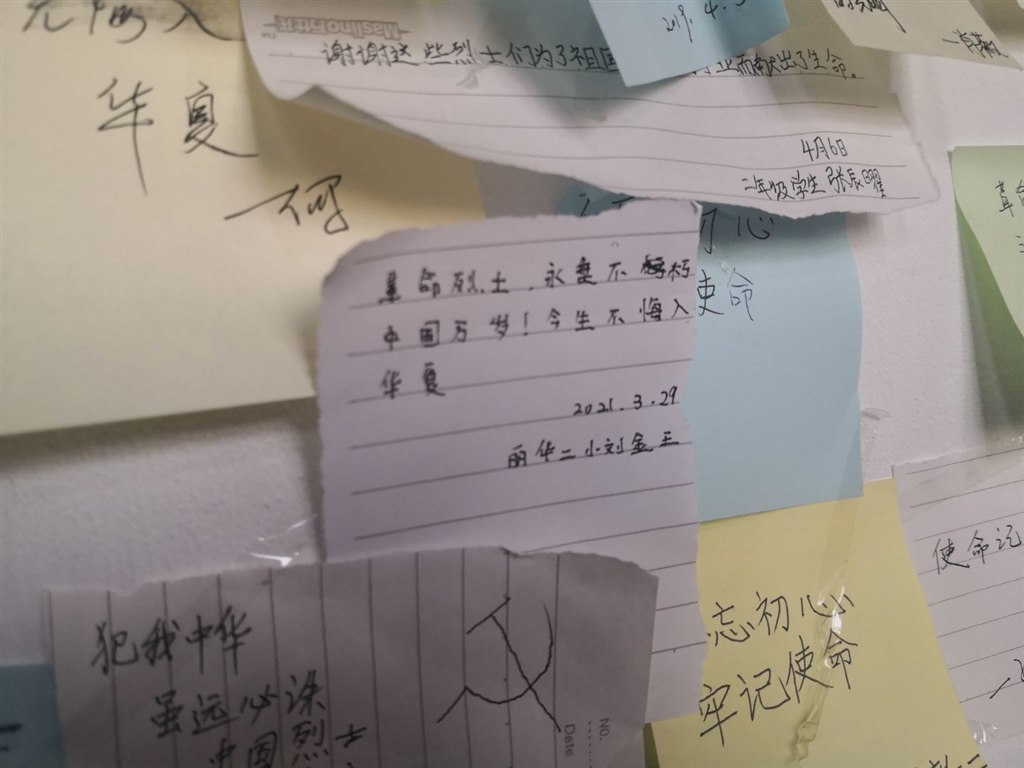 无悔入
华夏
一何
谢谢这些烈士们为了祖国
业而献出了生命。
4月6日
二年级学生 张辰曜
革命烈士,永垂不朽
中国万岁!今生不悔入
华夏
2021.3.29
丽华二小刘金王
初心
使命
犯我中华
虽远必诛
中国烈士
No.
Date
忘初心
牢记使命
使命记